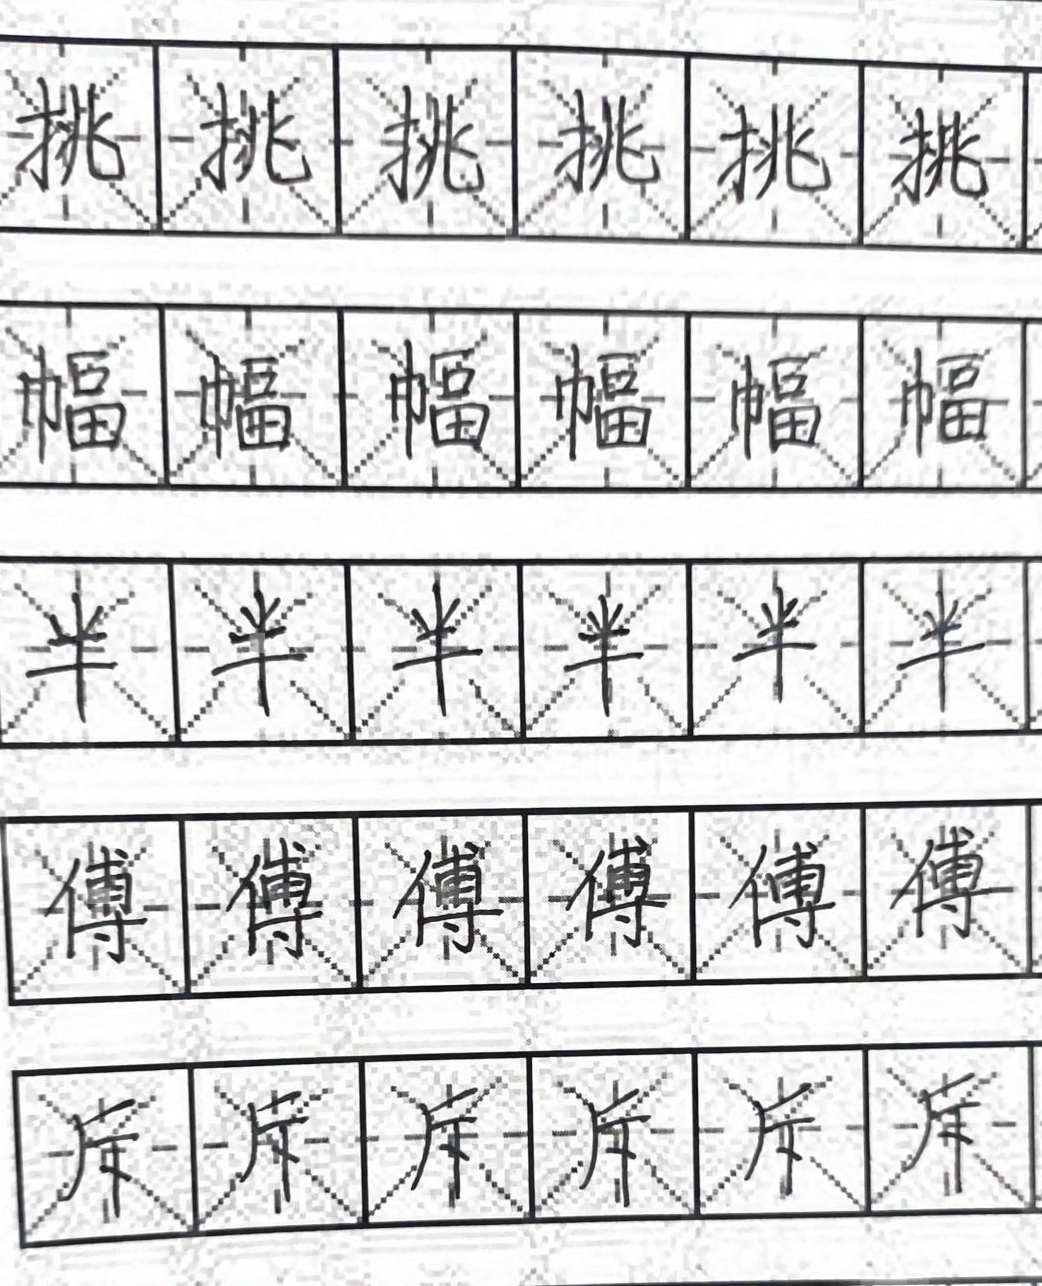 挑挑挑挑挑挑
幅幅幅幅幅幅
半半半半半半
傅傅傅傅傅傅
斥斥斥斥斥斥